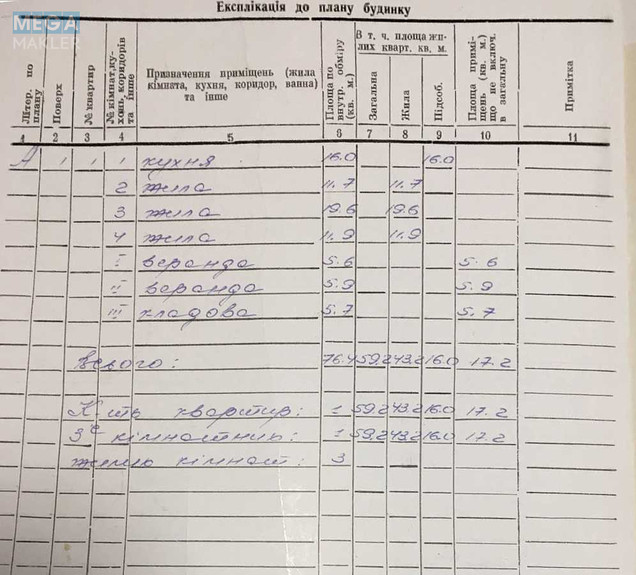 Експлікація до плану будинку
MEGA
MAKLER
Літер. по плану
Поверх
№ квартир
№ кімнат, ку-хонь, коридорів та інше
Призначення приміщень (жила кімната, кухня, коридор, ванна) та інше
Площа по внутр. обміру (кв. м)
В т. ч. площа жи-лих кварт. кв. м.
Загальна
Жила
Підсоб.
Площа примі-щень (кв. м.) що не включ. в загальну
Примітка
1 2 3 4 5 6 7 8 9 10 11
А 1 1 1 кухня 16.0 16.0
2 жила 11.7 11.7
3 жила 19.6 19.6
4 жила 11.9 11.9
I веранда 5.6 5.6
II веранда 5.9 5.9
III кладова 5.7 5.7
Всього: 76.4 59.2 43.2 16.0 17.2
К-ть квартир: 1 59.2 43.2 16.0 17.2
3х кімнатних: 1 59.2 43.2 16.0 17.2
жилих кімнат: 3